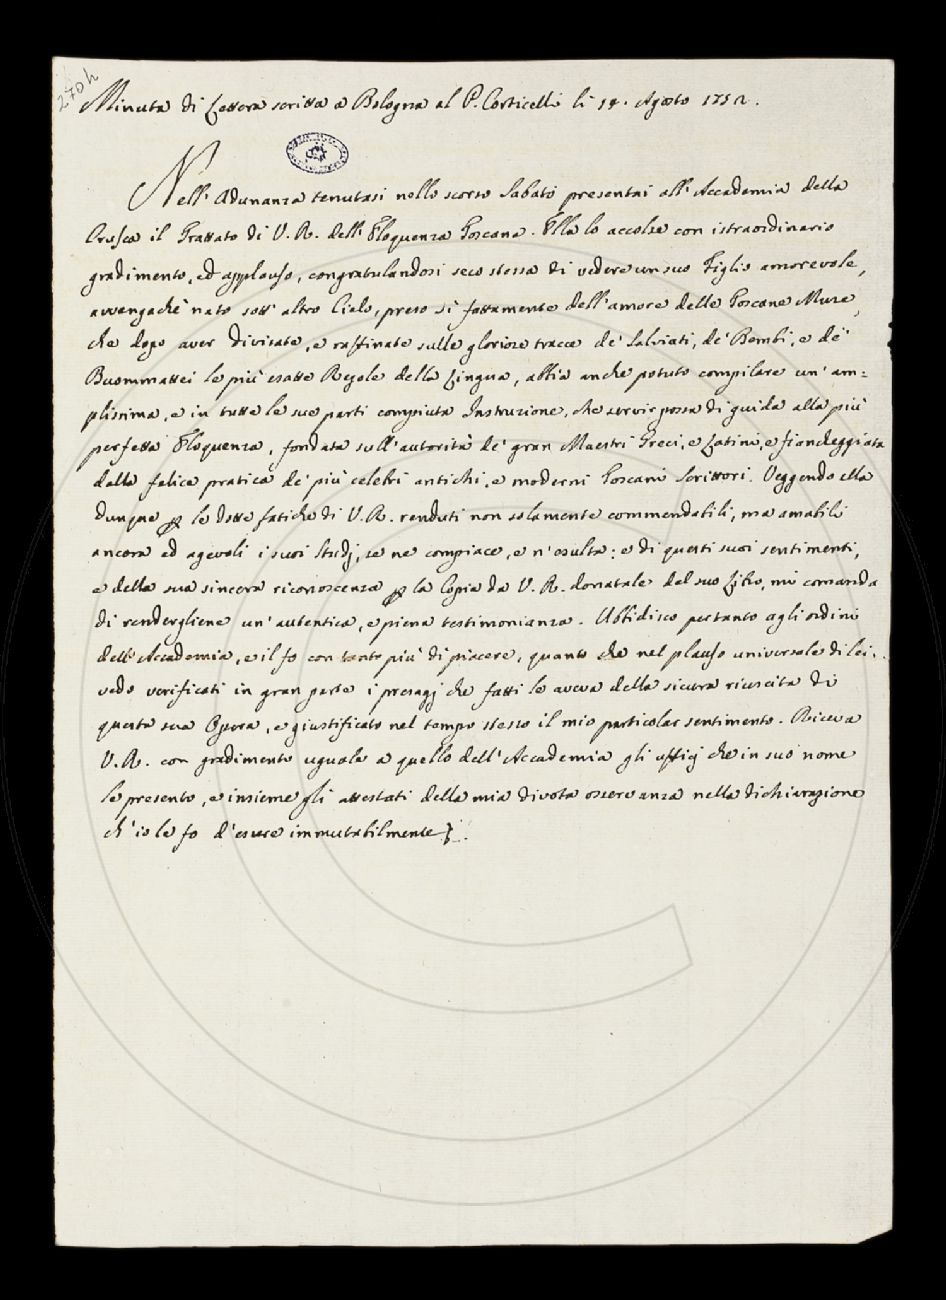 270h
Minuta di Lettera scritta a Bologna al P. Corticelli li 14. Agosto 1752.
Nell' Adunanza tenutasi nello scorso Sabato presentai all' Accademia della
Crusca il Trattato di V. R. dell' Eloquenza Toscana. Ella lo accolse con istraordinario
gradimento, ed applauso, congratulandosi seco stessa di vedere un suo Figlio amorevole,
avvengachè nato sott' altro Cielo, preso sì fattamente dell' amore delle Toscane Muse,
che dopo aver divisate, e raffinate sulle gloriose tracce de' Salviati, de' Bembi, e de'
Buommattei le più esatte Regole della Lingua, abbia anche potuto compilare un' am=
plissima, e in tutte le sue parti compiuta Instruzione, che servir possa di guida alla più
perfetta Eloquenza, fondata sull' autorità de' gran Maestri Greci, e Latini, e fiancheggiata
dalla felice pratica de' più celebri antichi, e moderni Toscani Scrittori. Veggendo ella
dunque p le dotte fatiche di V. R. renduti non solamente commendabili, ma amabili
ancora ed agevoli i suoi Studj, se ne compiace, e n' esulta: e di questi suoi sentimenti,
e della sua sincera riconoscenza p la Copia da V. R. donatale del suo Libro, mi comanda
di rendergliene un' autentica, e piena testimonianza. Ubbidisco pertanto agli ordini
dell' Accademia, e il fo con tanto più di piacere, quanto che nel plauso universale di lei,
vedo verificati in gran parte i presagj che fatti le aveva della sicura riuscita di
questa sua Opera, e giustificato nel tempo stesso il mio particolar sentimento. Riceva
V. R. con gradimento uguale a quello dell' Accademia gli uffizj che in suo nome
le presento, e insieme gli attestati della mia divota osservanza nella dichiarazione
ch' io le fo d' essere immutabilmente